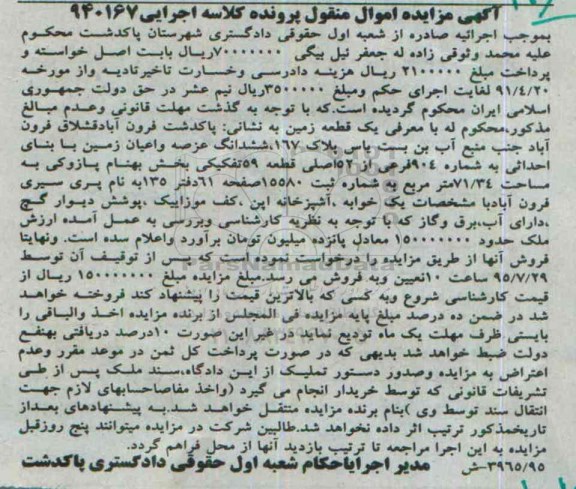 آگهی مزایده اموال منقول پرونده کلاسه اجرایی۹۴۰۱۶۷
بموجب اجرائیه صادره از شعبه اول حقوقی دادگستری شهرستان پاکدشت محکوم
علیه محمد وثوقی زاده له جعفر نیل بیگی ۷۰۰۰۰۰۰۰ریال بابت اصل خواسته و
پرداخت مبلغ ۲۱۰۰۰۰۰ ریال هزینه دادرسی وخسارت تاخیرتادیه واز مورخه
۹۱/۴/۲۰ لغایت اجرای حکم ومبلغ ۳۵۰۰۰۰۰ریال نیم عشر در حق دولت جمهوری
اسلامی ایران محکوم گردیده است.که با توجه به گذشت مهلت قانونی وعدم مبالغ
مذکور،محکوم له با معرفی یک قطعه زمین به نشانی: پاکدشت فرون آبادقشلاق فرون
آباد جنب منبع آب بن بست یاس پلاک ۱۶۷،ششدانگ عرصه واعیان زمین با بنای
احداثی به شماره ۹۰۴فرعی از۵۲اصلی قطعه ۵۹تفکیکی بخش بهنام پازوکی به
مساحت ۷۱/۳۴متر مربع به شماره ثبت ۱۵۵۸۰صفحه ۶۱دفتر ۱۳۵به نام پری سیری
فرون آبادبا مشخصات یک خوابه ،آشپزخانه اپن ،کف موزاییک ،پوشش دیوار گچ
،دارای آب،برق وگاز که با توجه به نظریه کارشناسی وبررسی به عمل آمده ارزش
ملک حدود ۱۵۰۰۰۰۰۰۰ معادل پانزده میلیون تومان برآورد واعلام سده است. ونهایتا
فروش آنها از طریق مزایده را درخواست نموده است که پس از توقیف آن توسط
۹۵/۷/۲۹ ساعت ۱۰تعیین وبه فروش می رسد.مبلغ مزایده مبلغ ۱۵۰۰۰۰۰۰۰ ریال از
قیمت کارشناسی شروع وبه کسی که بالاترین قیمت را پیشنهاد کند فروخته خواهد
شد در ضمن ده درصد مبلغ پایه مزایده فی المجلس از برنده مزایده اخذ والباقی را
بایستی ظرف مهلت یک ماه تودیع نماید در غیر این صورت ۱۰درصد دریافتی بهنفع
دولت ضبط خواهد شد بدیهی که در صورت پرداخت کل ثمن در موعد مقرر وعدم
اعتراض به مزایده وصدور دستور تملیک از این دادگاه،سند ملک پس از طی
تشریفات قانونی که توسط خریدار انجام می گیرد (واخذ مفاصاحسابهای لازم جهت
انتقال سند توسط وی )بنام برنده مزایده منتقل خواهد شد.به پیشنهادهای بعداز
تاریخمذکور ترتیب اثر داده نخواهد شد.طالبین شرکت در مزایده میتوانند پنج روزقبل
مزایده به این اجرا مراجعه تا ترتیب بازدید آنها از محل فراهم گردد.
۳۹۶۵/۹۵-ش مدیر اجرایاحکام شعبه اول حقوقی دادگستری پاکدشت